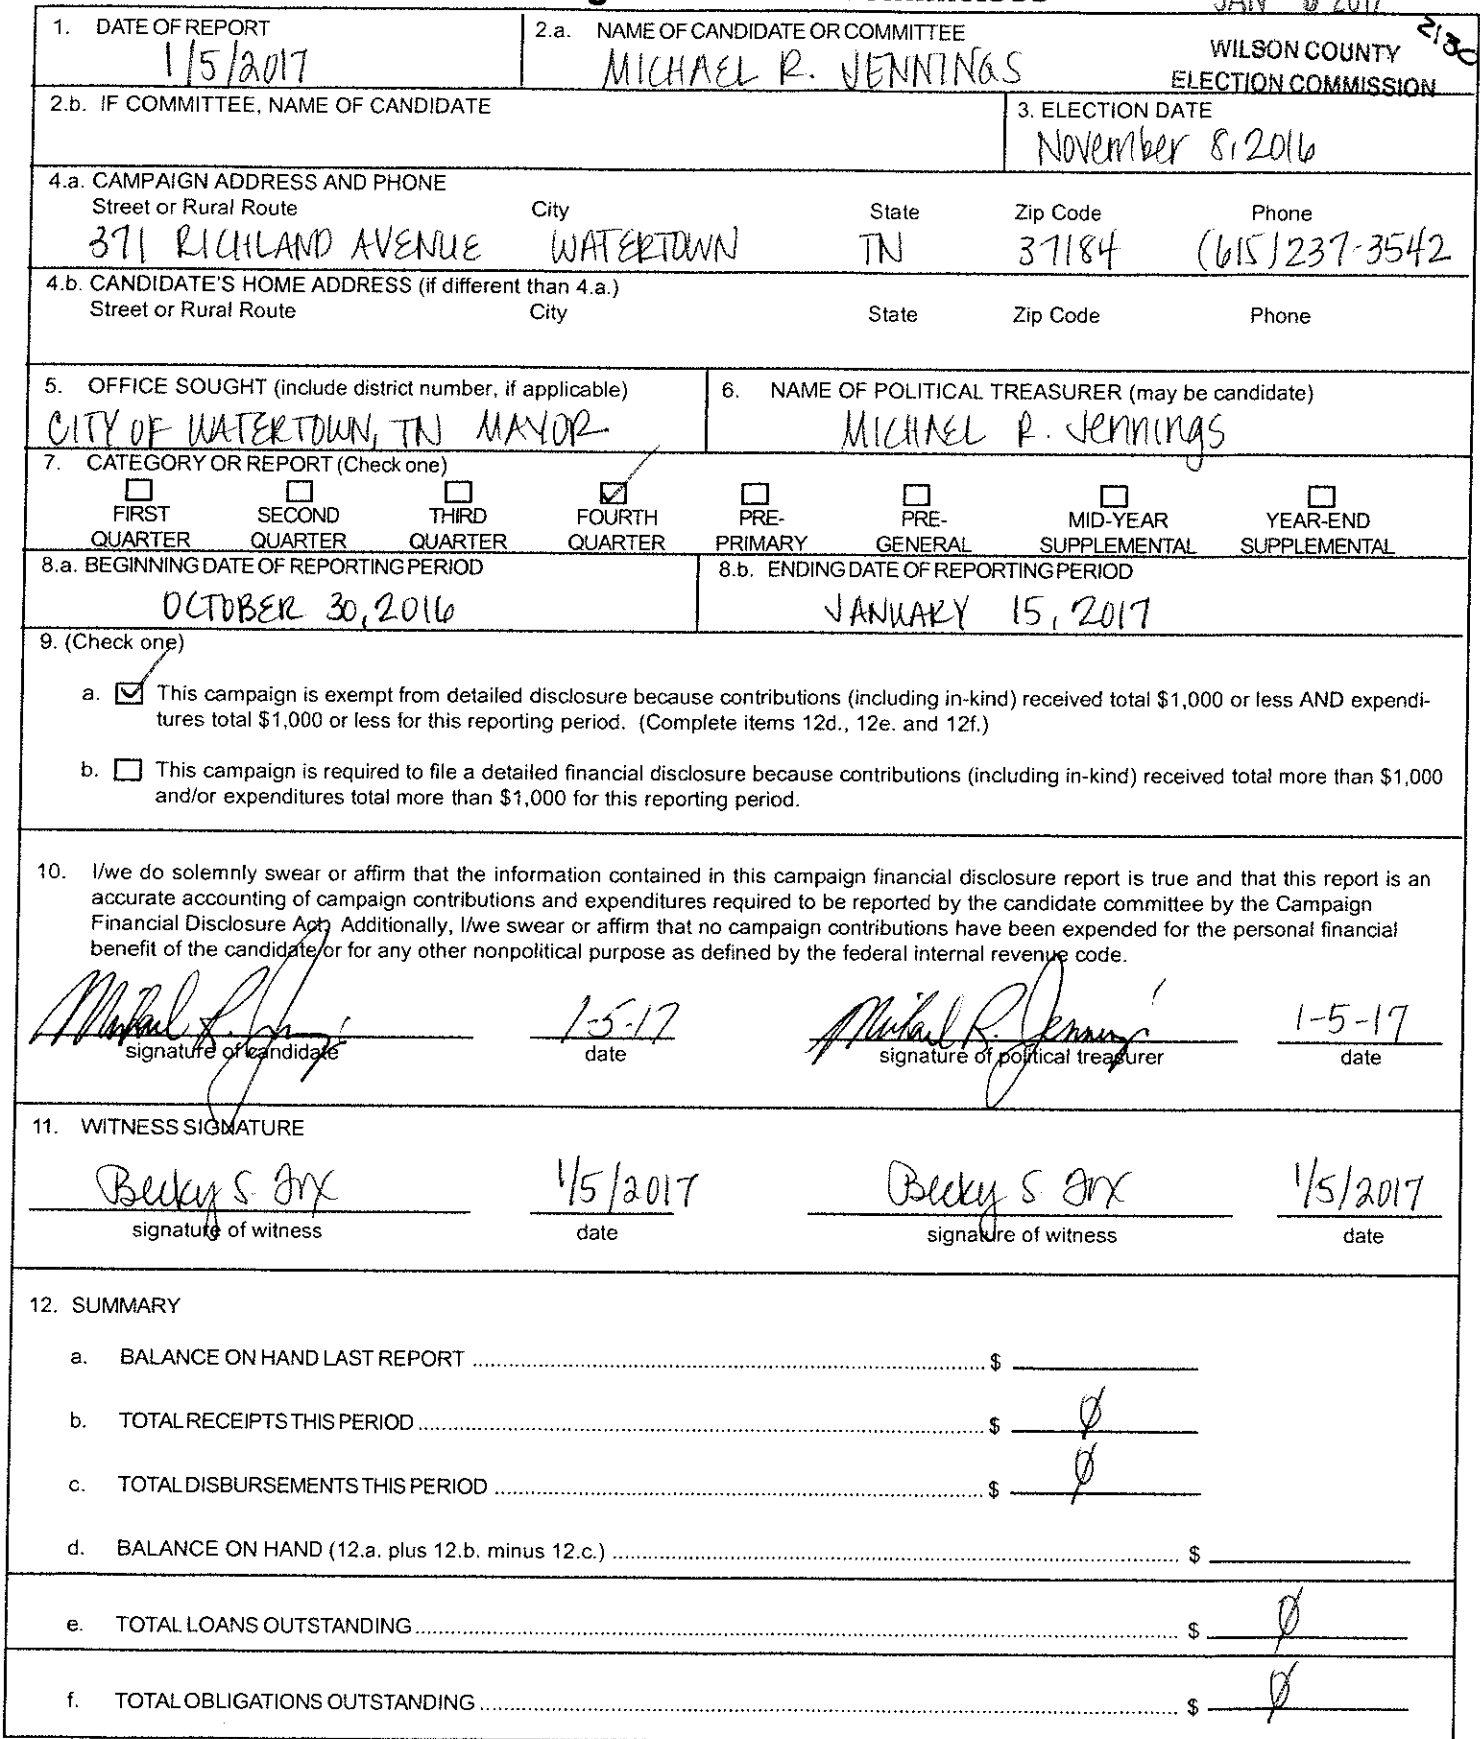 JAN 6 2017
1. DATE OF REPORT
1/5/2017
2.a. NAME OF CANDIDATE OR COMMITTEE
MICHAEL R. JENNINGS
WILSON COUNTY
ELECTION COMMISSION
2.b. IF COMMITTEE, NAME OF CANDIDATE
3. ELECTION DATE
November 8, 2016
4.a. CAMPAIGN ADDRESS AND PHONE
Street or Rural Route City State Zip Code Phone
371 RICHLAND AVENUE WATERTOWN TN 37184 (615) 237-3542
4.b. CANDIDATE'S HOME ADDRESS (if different than 4.a.)
Street or Rural Route City State Zip Code Phone
5. OFFICE SOUGHT (include district number, if applicable)
CITY OF WATERTOWN, TN MAYOR
6. NAME OF POLITICAL TREASURER (may be candidate)
MICHAEL R. Jennings
7. CATEGORY OR REPORT (Check one)
FIRST SECOND THIRD FOURTH PRE- PRE- MID-YEAR YEAR-END
QUARTER QUARTER QUARTER QUARTER PRIMARY GENERAL SUPPLEMENTAL SUPPLEMENTAL
8.a. BEGINNING DATE OF REPORTING PERIOD
OCTOBER 30, 2016
8.b. ENDING DATE OF REPORTING PERIOD
JANUARY 15, 2017
9. (Check one)
a. This campaign is exempt from detailed disclosure because contributions (including in-kind) received total $1,000 or less AND expendi-
tures total $1,000 or less for this reporting period. (Complete items 12d., 12e. and 12f.)
b. This campaign is required to file a detailed financial disclosure because contributions (including in-kind) received total more than $1,000
and/or expenditures total more than $1,000 for this reporting period.
10. I/we do solemnly swear or affirm that the information contained in this campaign financial disclosure report is true and that this report is an
accurate accounting of campaign contributions and expenditures required to be reported by the candidate committee by the Campaign
Financial Disclosure Act. Additionally, I/we swear or affirm that no campaign contributions have been expended for the personal financial
benefit of the candidate or for any other nonpolitical purpose as defined by the federal internal revenue code.
Michael R. Jennings 1-5-17 Michael R. Jennings 1-5-17
signature of candidate date signature of political treasurer date
11. WITNESS SIGNATURE
Becky S. 1/5/2017 Becky S 1/5/2017
signature of witness date signature of witness date
12. SUMMARY
a. BALANCE ON HAND LAST REPORT $
b. TOTAL RECEIPTS THIS PERIOD $ Ø
c. TOTAL DISBURSEMENTS THIS PERIOD $ Ø
d. BALANCE ON HAND (12.a. plus 12.b. minus 12.c.) $
e. TOTAL LOANS OUTSTANDING $ Ø
f. TOTAL OBLIGATIONS OUTSTANDING $ Ø